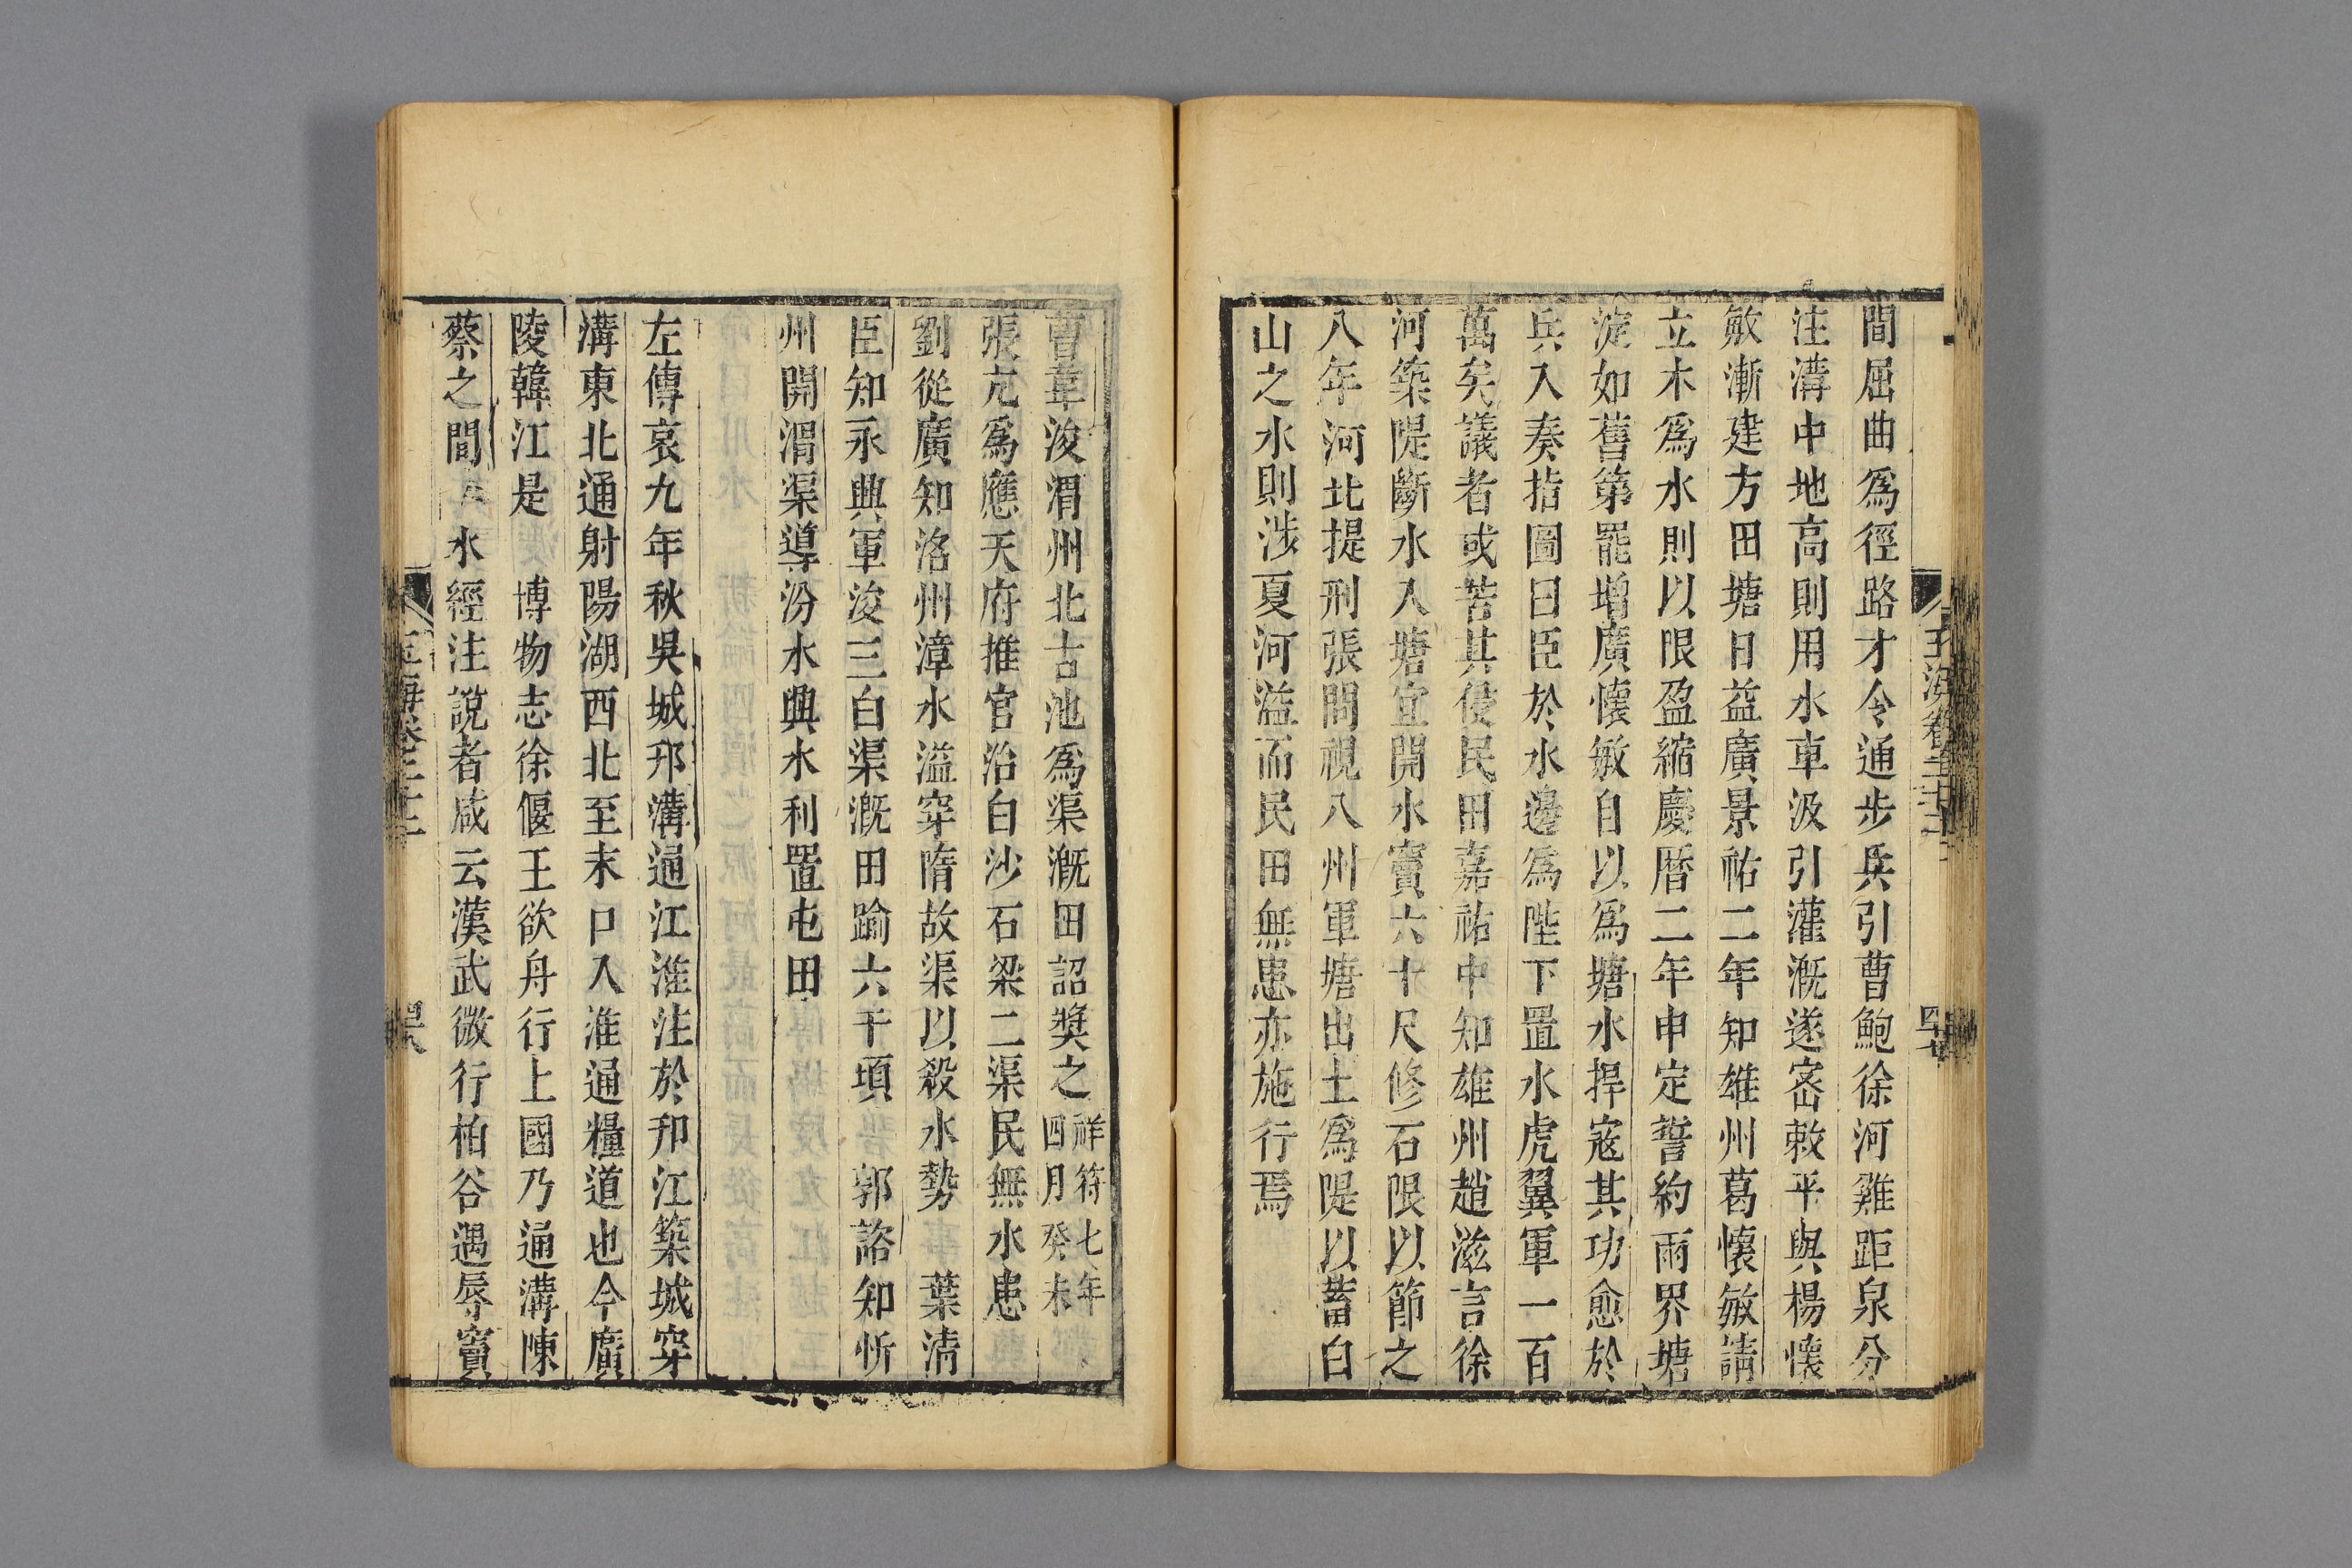 間屈曲爲徑路才令通步兵引曹鮑徐河雞距泉分
注溝中地高則用水車汲引灌漑遂密敕平與楊懷
敏漸建方田塘日益廣景祐二年知雄州葛懷敏請
立木爲水則以限盈縮慶曆二年申定誓約兩界塘
淀如舊第罷增廣懷敏自以爲塘水捍寇其功愈於
兵入奏指圖曰臣於水邊爲陛下置水虎翼軍一百
萬矣議者或苦其侵民田嘉祐中知雄州趙滋言徐
河築隄斷水入塘宜開水竇六十尺修石限以節之
八年河北提刑張問視八州軍塘出土爲隄以蓄白
山之水則涉夏河溢而民田無患亦施行焉
曹韋浚渭州北古池爲渠漑田詔奬之祥符七年四月癸未
張亢爲應天府推官治白沙石梁二渠民無水患
劉從廣知洺州漳水溢穿隋故渠以殺水勢 葉清
臣知永興軍浚三白渠漑田踰六千頃 郭諮知忻
州開渭渠導汾水興水利置屯田
左傳哀九年秋吳城邗溝通江淮注於邗江築城穿
溝東北通射陽湖西北至末口入淮通糧道也今廣
陵韓江是 博物志徐偃王欲舟行上國乃通溝陳
蔡之間 水經注說者咸云漢武微行柏谷遇辱竇